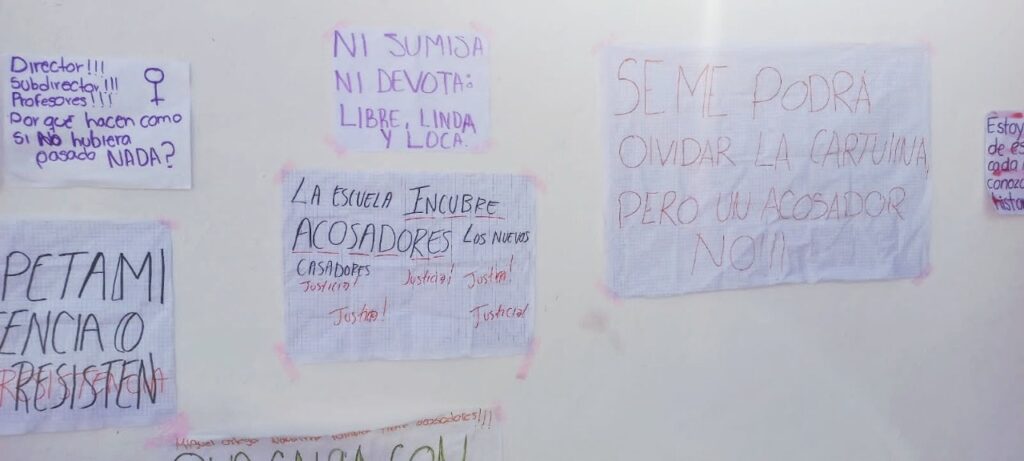 Director!!!
Subdirector!!!
Profesores!!!
Por qué hacen como
si NO hubiera
pasado NADA?
NI SUMISA
NI DEVOTA:
LIBRE, LINDA
Y LOCA.
SE ME PODRA
OlVIDAR LA CARTUlINA,
PERO UN ACOSADOR
NO!!!
LA ESCUELA INCUBRE
ACOSADORES LOS NUEVOS
CASADORES
Justicia! Justicia! Justicia!
Justicia! Justicia!
PETA MI
ENCIA O
RESISTEN
Estoy
de es
cada
conozc
histor
Miguel acosadores!!!
CON